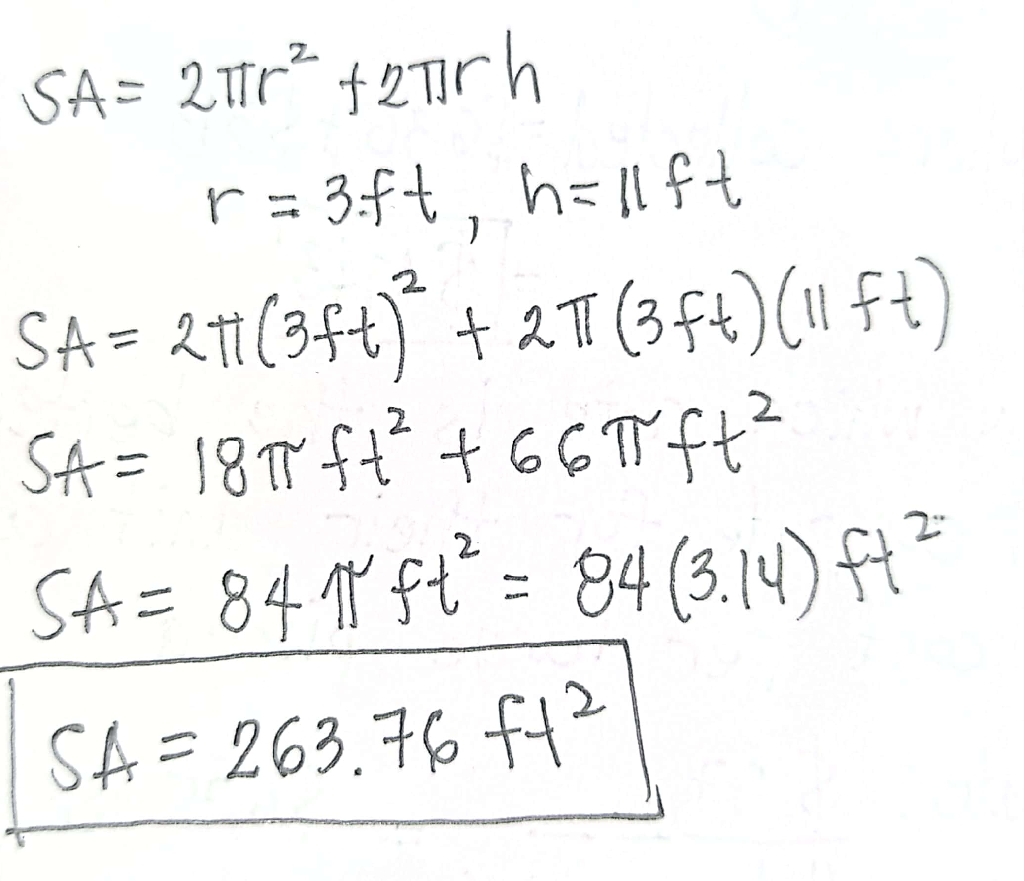 SA = 2πr² + 2πrh
r = 3ft, h = 11 ft
SA = 2π(3ft)² + 2π(3ft)(11 ft)
SA = 18π ft² + 66π ft²
SA = 84π ft² = 84(3.14) ft²
SA = 263.76 ft²